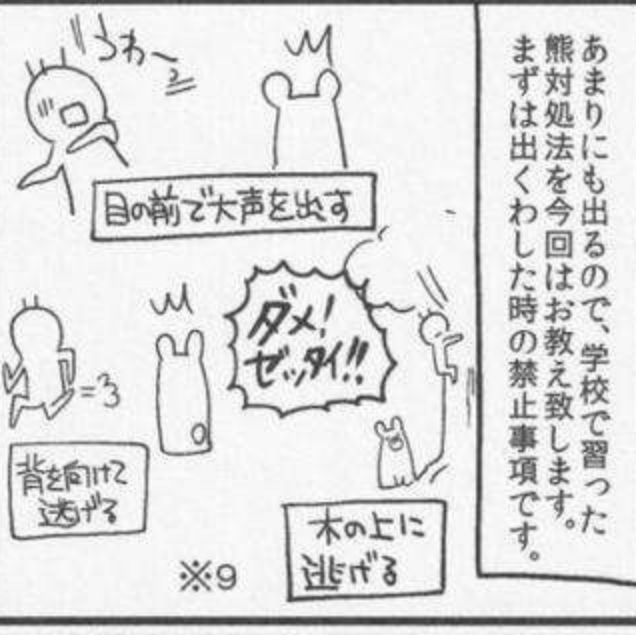 あまりにも出るので、学校で習った
熊対処法を今回はお教え致します。
まずは出くわした時の禁止事項です。
うわー
目の前で大声を出す
ダメ!
ゼッタイ!!
背を向けて
逃げる
木の上に
逃げる
※9